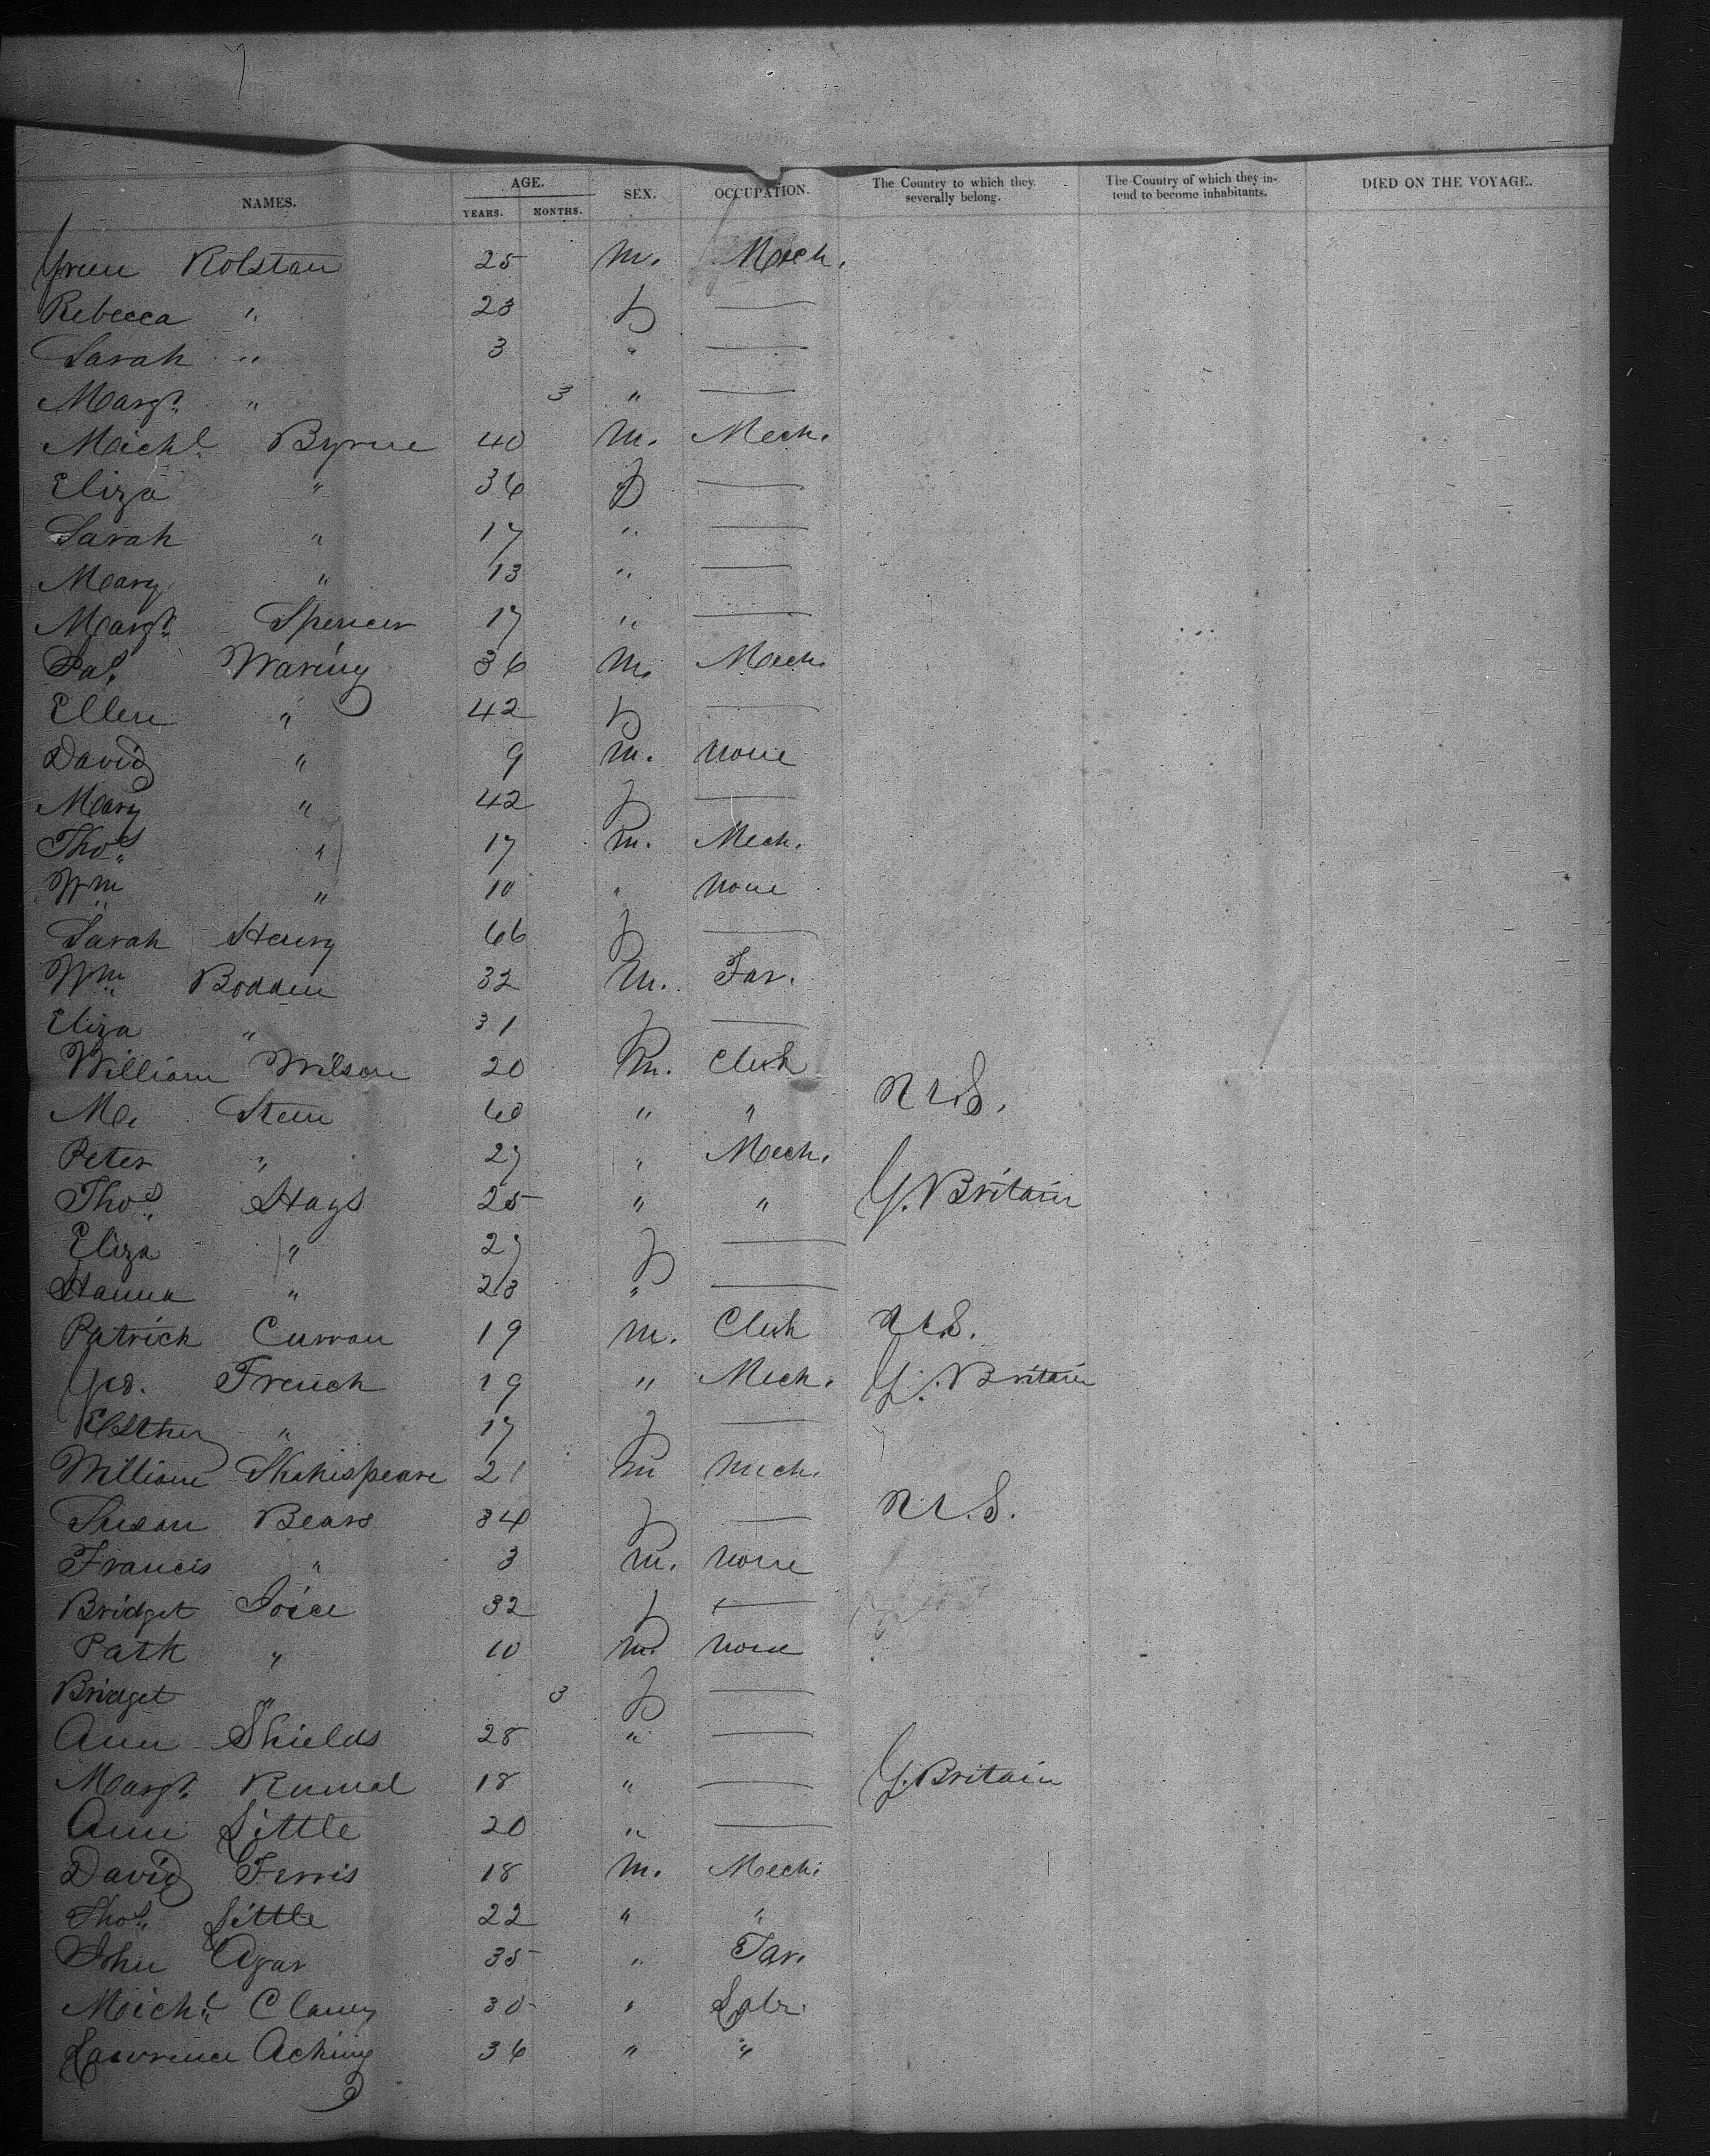 NAMES. AGE. YEARS. MONTHS. SEX. OCCUPATION. The Country to which they severally belong. The Country of which they intend to become inhabitants. DIED ON THE VOYAGE.
Rolston 25 M. Mech.
Rebecca " 23 f —
Sarah " 3 " —
Margt. " 3 " —
Michl. Byrne 40 M. Mech.
Eliza " 36 f —
Sarah " 17 " —
Mary " 13 " —
Margt. Spencer 17 " —
Pat. Waring 36 M. Mech.
Ellen " 42 f —
David " 9 M. none
Mary " 42 f —
Thos. " 17 M. Mech.
Wm. " 10 " none
Sarah Henry 66 f —
Wm. Bodden 32 M. Far.
Eliza " 31 f —
William Wilson 20 M. Clerk
M. Stein 60 " " U.S.
Peter " 27 " Mech.
Thos. Hays 25 " " G. Britain
Eliza " 27 f —
Hanna " 23 " —
Patrick Curran 19 M. Clerk U.S.
Geo. French 19 " Mech. G. Britain
Esther " 17 f —
William Shakispeare 21 M Mech.
Susan Bears 34 f — U.S.
Francis " 3 M. none
Bridget Joice 32 f —
Patk " 10 M. none
Bridget " 3 f —
Ann Shields 28 " —
Margt. 18 " — G. Britain
Ann Little 20 " —
David Ferris 18 M. Mech.
Thos. Little 22 " "
John Agar 35 " Far.
Michl. Clancy 30 " Labr.
Lawrence Aching 36 " "